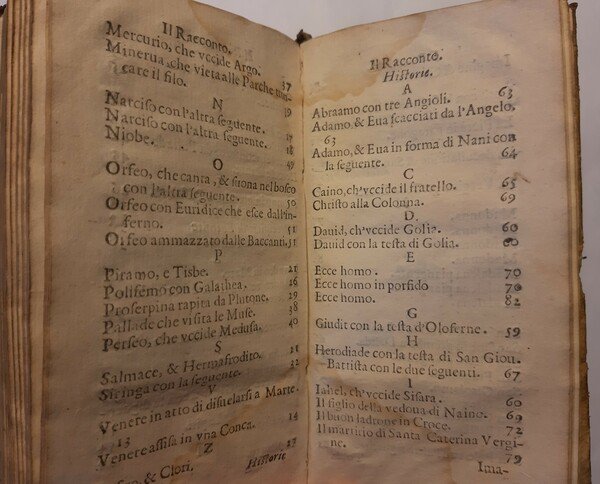 Il Racconto.
Mercurio, che vccide Argo. 37
Minerua, che vieta alle Parche tron-
care il filo. 19
N
Narciso con l'altra seguente.
Narciso con l'altra seguente. 17
Niobe. 18
49
O
Orfeo, che canta, & suona nel bosco
con l'altra seguente. 50
Orfeo con Euridice che esce dall'in-
ferno. 51
Orfeo ammazzato dalle Baccanti. 51
P
Piramo, e Tisbe. 21
Polifemo con Galathea. 16
Proserpina rapita da Plutone. 29
Pallade che visita le Muse. 38
Perseo, che vccide Medusa. 40
S
Salmace, & Hermafrodito.
Siringa con la seguente. 32
V
Venere in atto di disuelarsi a Marte.
13
Venere assisa in vna Conca. 14
Z
& Clori.
Historie
Il Racconto.
Historie.
A
Abraamo con tre Angioli. 63
Adamo, & Eua scacciati da l'Angelo.
63
Adamo, & Eua in forma di Nani con
la seguente. 64
C
Caino, ch'vccide il fratello. 65
Christo alla Colonna. 69
D.
Dauid, ch'vccide Golia. 60
Dauid con la testa di Golia. 60
E
Ecce homo. 70
Ecce homo in porfido 70
Ecce homo. 82
G
Giudit con la testa d'Oloferne. 59
H
Herodiade con la testa di San Giou.
Battista con le due seguenti. 67
I
Iahel, ch'vccide Sisara. 60
Il figlio della vedoua di Naino. 69
Il buon ladrone in Croce. 72
Il martirio di Santa Caterina Vergi-
ne. 79
Ima-